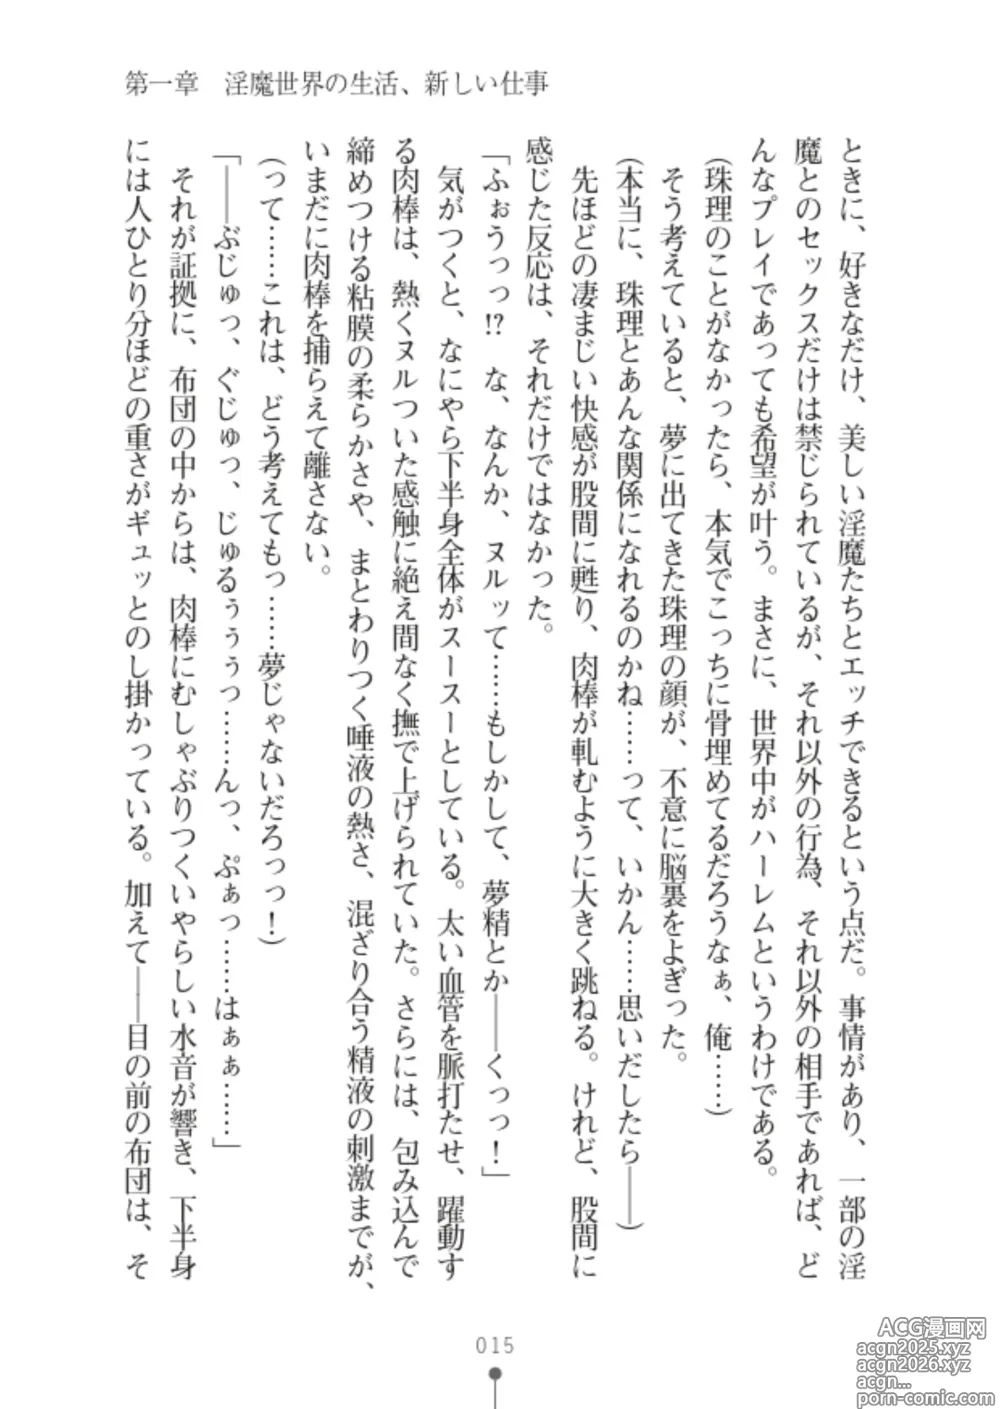 第一章　淫魔世界の生活、新しい仕事
ときに、好きなだけ、美しい淫魔たちとエッチできるという点だ。事情があり、一部の淫
魔とのセックスだけは禁じられているが、それ以外の行為、それ以外の相手であれば、ど
んなプレイであっても希望が叶う。まさに、世界中がハーレムというわけである。
（珠理のことがなかったら、本気でこっちに骨埋めてるだろうなぁ、俺……）
　そう考えていると、夢に出てきた珠理の顔が、不意に脳裏をよぎった。
（本当に、珠理とあんな関係になれるのかね……って、いかん……思いだしたら――）
　先ほどの凄まじい快感が股間に甦り、肉棒が軋むように大きく跳ねる。けれど、股間に
感じた反応は、それだけではなかった。
「ふぉうっっ!?　な、なんか、ヌルッて……もしかして、夢精とか――くっっ！」
　気がつくと、なにやら下半身全体がスースーとしている。太い血管を脈打たせ、躍動す
る肉棒は、熱くヌルついた感触に絶え間なく撫で上げられていた。さらには、包み込んで
締めつける粘膜の柔らかさや、まとわりつく唾液の熱さ、混ざり合う精液の刺激までが、
いまだに肉棒を捕らえて離さない。
（って……これは、どう考えてもっ……夢じゃないだろっっ！）
「――ぶじゅっ、ぐじゅっ、じゅるぅぅぅっ……んっ、ぷぁっ……はぁぁ……」
　それが証拠に、布団の中からは、肉棒にむしゃぶりつくいやらしい水音が響き、下半身
には人ひとり分ほどの重さがギュッとのし掛かっている。加えて――目の前の布団は、そ
015
ACG漫画网
acgn2025.xyz
acgn2026.xyz
acgn...
porn-comic.com